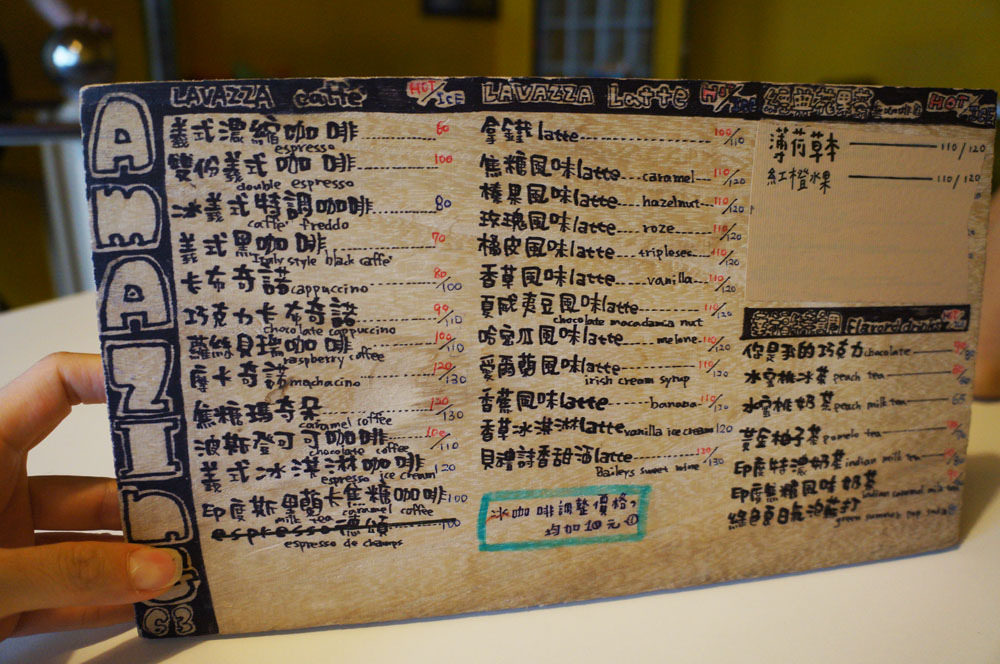 AMAZING
63
LAVAZZA caffe' HOT/ICE
義式濃縮咖啡 60
espresso
雙份義式咖啡 100
double espresso
冰義式特調咖啡 80
caffe' freddo
義式黑咖啡 70
Italy style black caffe'
卡布奇諾 cappuccino 80/100
巧克力卡布奇諾 90/110
chocolate cappuccino
蘿絲貝瑞咖啡 100/110
raspberry coffee
摩卡奇諾 machacino 120/130
焦糖瑪奇朵 120/130
caramel coffee
波斯登可可咖啡 100/110
chocolate coffee
義式冰淇淋咖啡 120
espresso ice cream
印度斯里蘭卡焦糖咖啡 100
milk tea caramel coffee
espresso 100
espresso de champs
LAVAZZA Latte HOT/ICE
拿鐵 latte 100/110
焦糖風味latte caramel 110/120
榛果風味latte hazelnut 110/120
玫瑰風味latte roze 110/120
橘皮風味latte tripleses 110/120
香草風味latte vanilla 110/120
夏威夷豆風味latte 110/120
chocolate macadamia nut
哈密瓜風味latte melone 110/120
愛爾蘭風味latte 110/120
irish cream syrup
香蕉風味latte banana 110/120
香草冰淇淋latte vanilla ice cream 120
貝禮詩香甜酒latte 120/130
Baileys sweet wine
冰咖啡調整價格,
均加10元
經典花果茶 HOT/ICE
薄荷草本 110/120
紅橙水果 110/120
你是我的巧克力 chocolate
水蜜桃冰茶 peach tea
水蜜桃奶茶 peach milk tea 65
黃金柚子茶 pomelo tea
印度特濃奶茶 indian milk tea
印度焦糖風味奶茶
indian caramel milk tea
綠色夏日氣泡蘇打
green summer pop soda